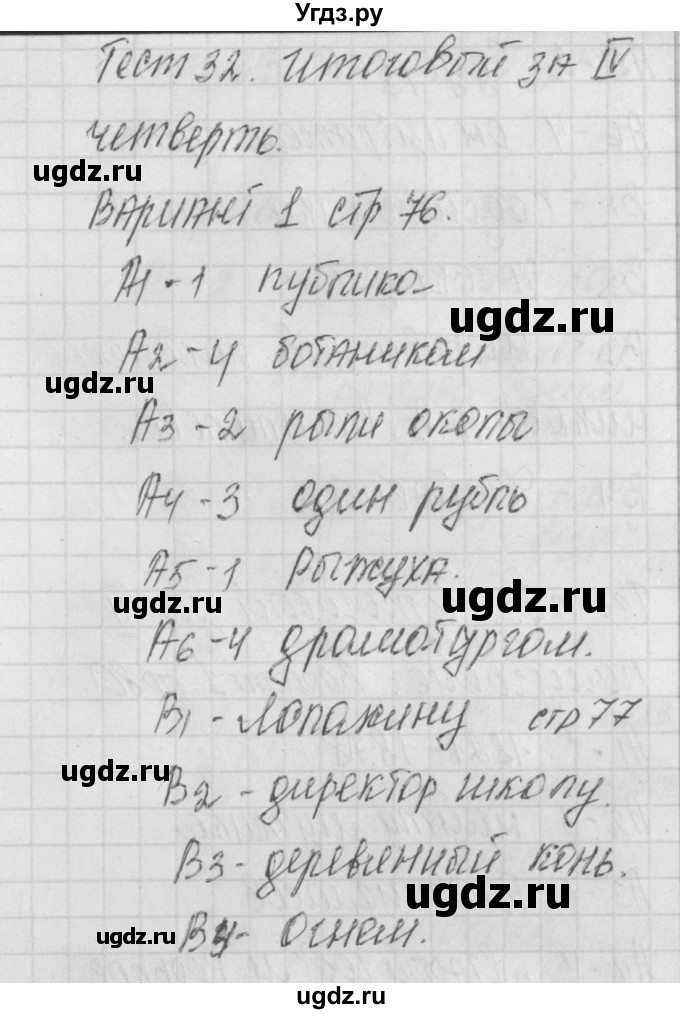 Угдз.ру
Тест 32. Итоговый за IV
четверть.
ugdz.ru
Вариант 1 стр 76.
А1-1 публика
ugdz.ru
А2-4 ботаником
ugdz.ru
А3-2 рыли окопы
А4-3 один рубль
А5-1 Рыжуха.
ugdz.ru
ugdz.ru
А6-4 драмотургом.
В1-Лопахину стр 77
ugdz.ru
В2-директор школу.
В3-деревянный конь.
ugdz.ru
ugdz.ru
В4-Огнем.
ugdz.ru